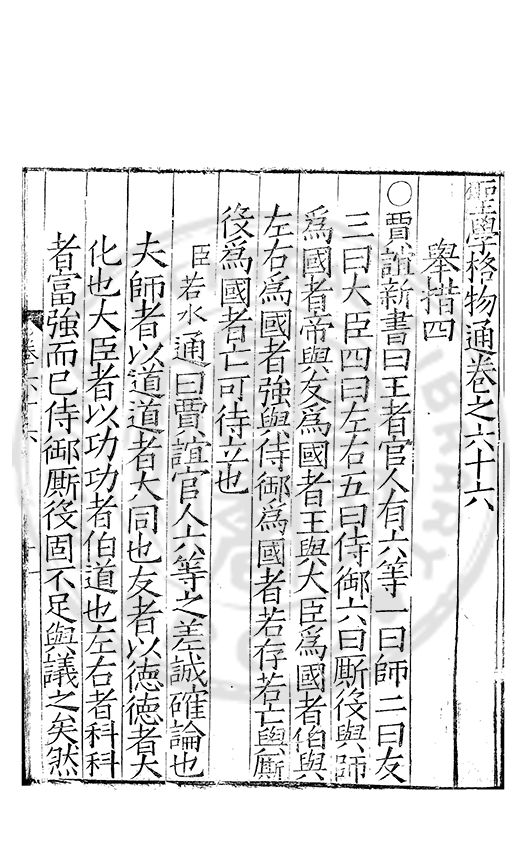 聖學格物通卷之六十六
舉措四
〇賈誼新書曰王者官人有六等一曰師二曰友
三曰大臣四曰左右五曰侍御六曰厮役與師
爲國者帝與友爲國者王與大臣爲國者伯與
左右爲國者強與侍御爲國者若存若亡與厮
役爲國者亡可待立也
臣若水通曰賈誼官人六等之差誠確論也
夫師者以道道者大同也友者以徳徳者大
化也大臣者以功功者伯道也左右者科科
者富強而已侍御厮役固不足與議之矣然
卷六十六